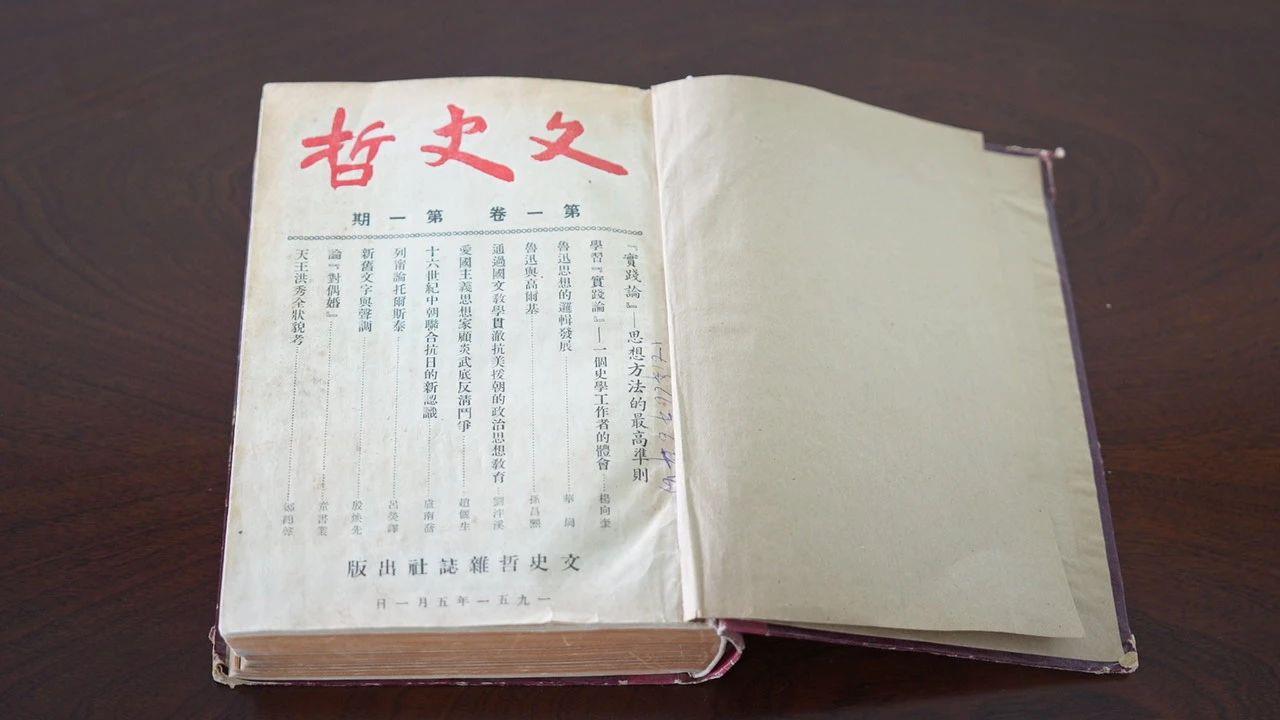 文史哲
第一卷 第一期
『實踐論』——思想方法的最高準則
學習『實踐論』——一個史學工作者的體會 楊向奎
魯迅思想的邏輯發展 華崗
魯迅與高爾基 孫昌熙
通過國文敎學貫澈抗美援朝的政治思想敎育 劉泮溪
愛國主義思想家顧炎武底反清鬥爭 趙儷生
十六世紀中朝聯合抗日的新認識 盧南喬
列甯論托爾斯泰 呂熒譯
新舊文字與聲調 殷煥先
論『對偶婚』 童書業
天王洪秀全狀貌考
文史哲雜誌社出版
一九五一年五月一日